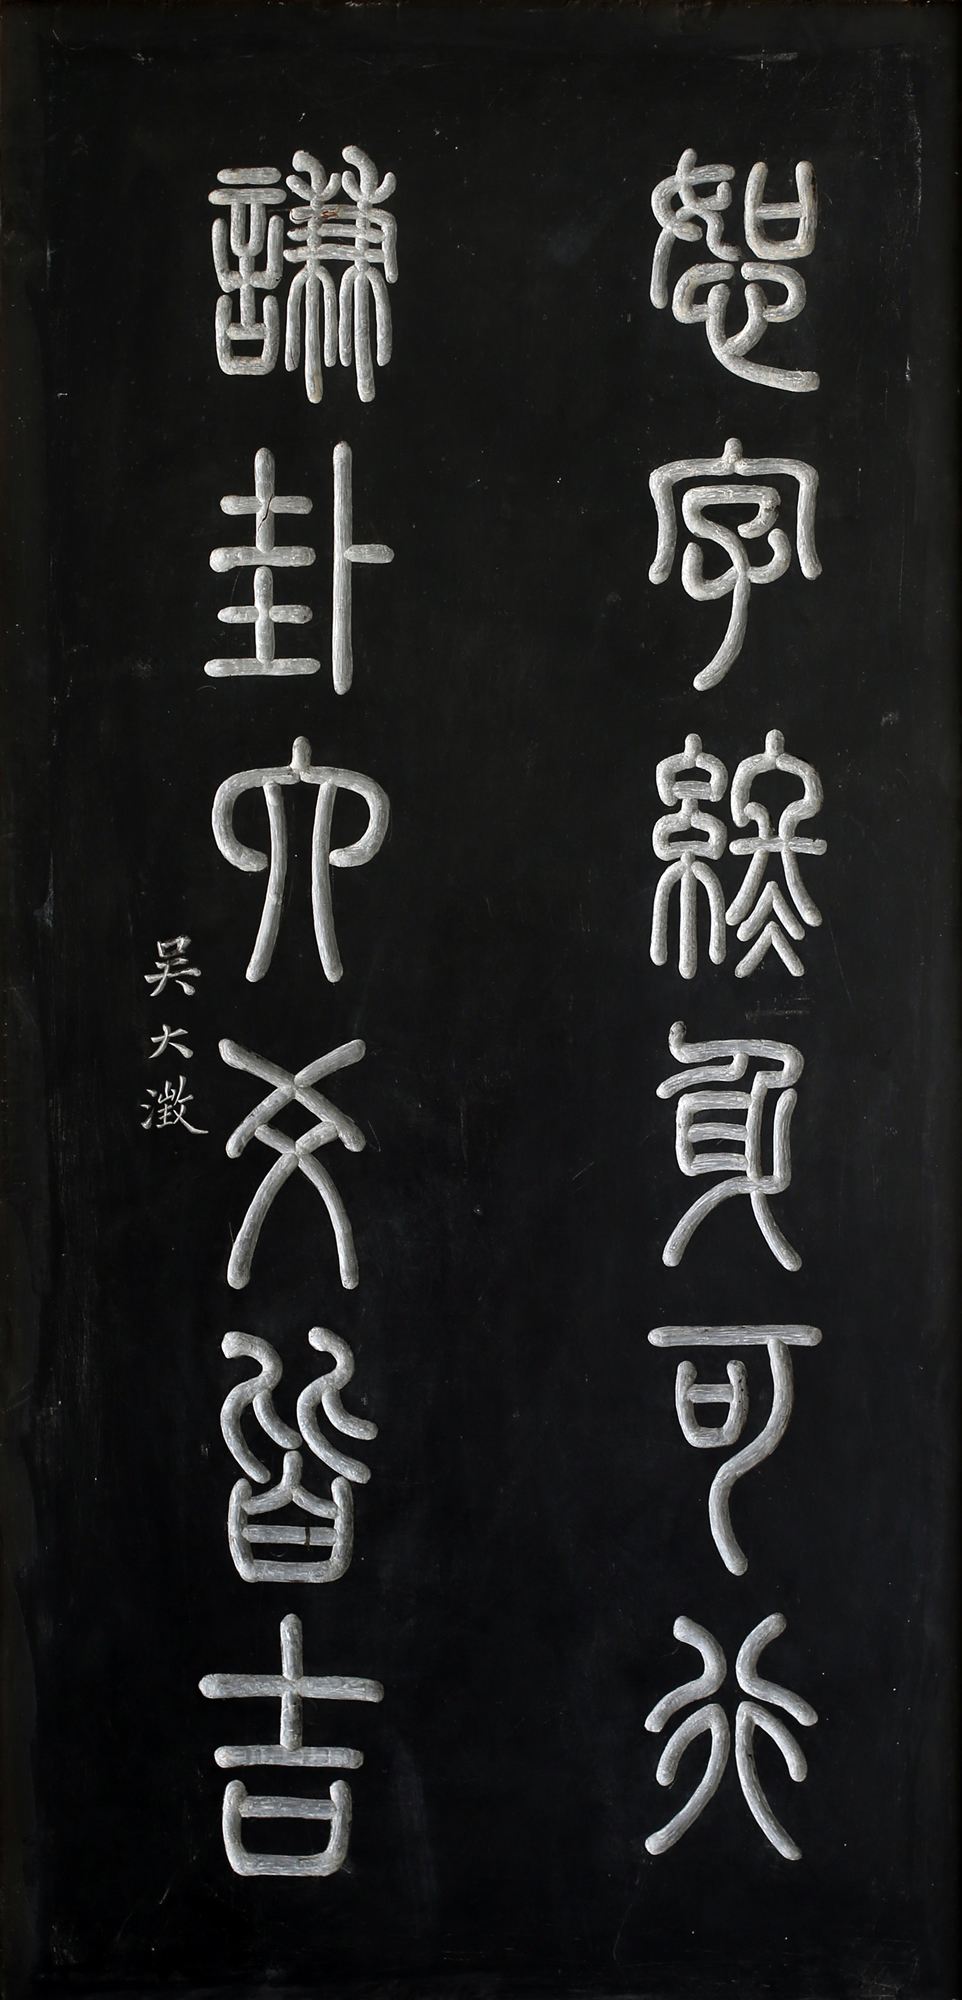 恕字終身可行
謙卦六爻皆吉
吳大澂